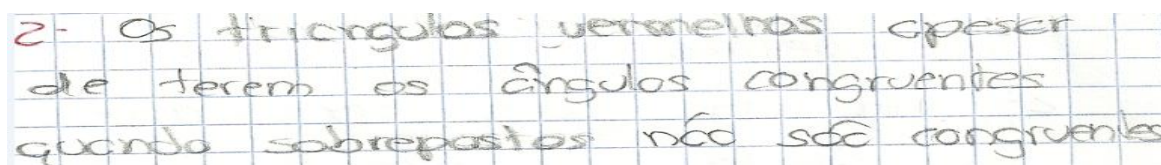 2- Os triângulos vermelhos apesar
de terem os ângulos congruentes
quando sobrepostos não são congruentes